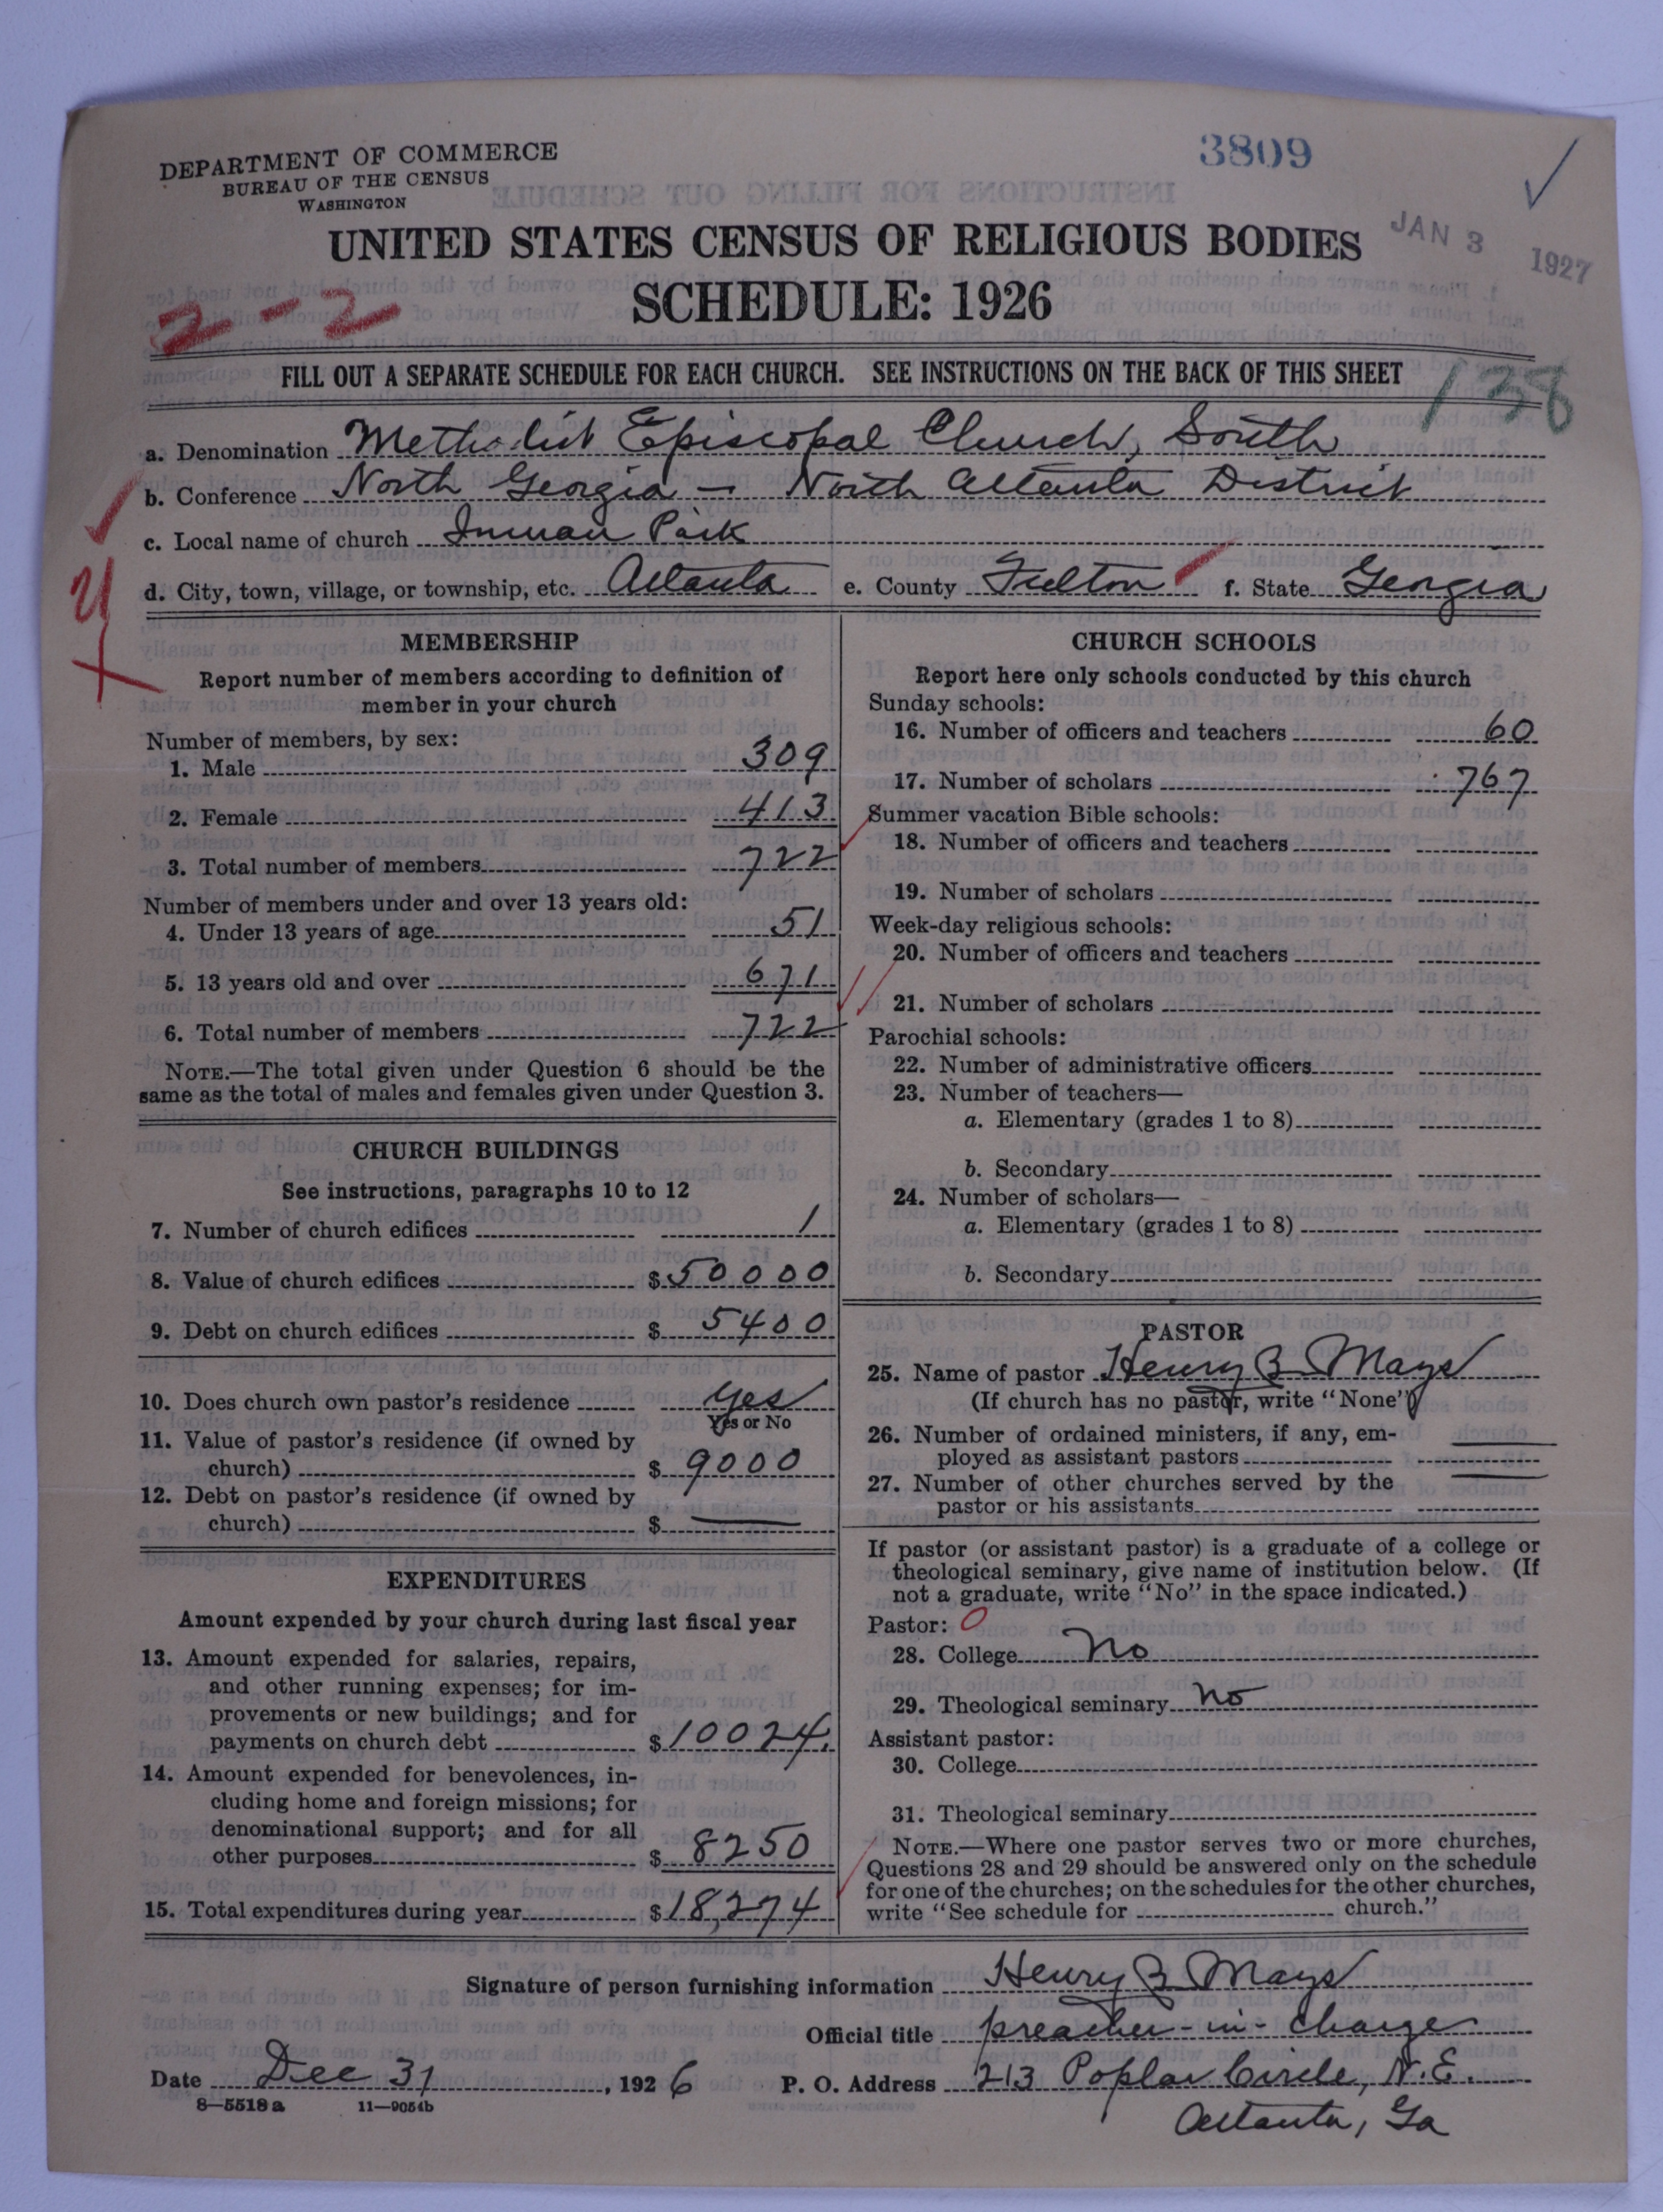 DEPARTMENT OF COMMERCE
BUREAU OF THE CENSUS
WASHINGTON
3809
JAN 3 1927
UNITED STATES CENSUS OF RELIGIOUS BODIES
SCHEDULE: 1926
2-2
FILL OUT A SEPARATE SCHEDULE FOR EACH CHURCH. SEE INSTRUCTIONS ON THE BACK OF THIS SHEET
138
a. Denomination Methodist Episcopal Church, South
b. Conference North Georgia - North Atlanta District
c. Local name of church Inman Park
d. City, town, village, or township, etc. Atlanta e. County Fulton f. State Georgia
MEMBERSHIP
Report number of members according to definition of
member in your church
Number of members, by sex:
1. Male 309
2. Female 413
3. Total number of members 722
Number of members under and over 13 years old:
4. Under 13 years of age 51
5. 13 years old and over 671
6. Total number of members 722
NOTE.—The total given under Question 6 should be the
same as the total of males and females given under Question 3.
CHURCH BUILDINGS
See instructions, paragraphs 10 to 12
7. Number of church edifices 1
8. Value of church edifices $50000
9. Debt on church edifices $5400
10. Does church own pastor's residence yes
Yes or No
11. Value of pastor's residence (if owned by
church) $9000
12. Debt on pastor's residence (if owned by
church) $ —
EXPENDITURES
Amount expended by your church during last fiscal year
13. Amount expended for salaries, repairs,
and other running expenses; for im-
provements or new buildings; and for
payments on church debt $10024.
14. Amount expended for benevolences, in-
cluding home and foreign missions; for
denominational support; and for all
other purposes $8250
15. Total expenditures during year $18,274
CHURCH SCHOOLS
Report here only schools conducted by this church
Sunday schools:
16. Number of officers and teachers 60
17. Number of scholars 767
Summer vacation Bible schools:
18. Number of officers and teachers
19. Number of scholars
Week-day religious schools:
20. Number of officers and teachers
21. Number of scholars
Parochial schools:
22. Number of administrative officers
23. Number of teachers—
a. Elementary (grades 1 to 8)
b. Secondary
24. Number of scholars—
a. Elementary (grades 1 to 8)
b. Secondary
PASTOR
25. Name of pastor Henry B Mays
(If church has no pastor, write "None")
26. Number of ordained ministers, if any, em-
ployed as assistant pastors —
27. Number of other churches served by the
pastor or his assistants —
If pastor (or assistant pastor) is a graduate of a college or
theological seminary, give name of institution below. (If
not a graduate, write "No" in the space indicated.)
Pastor: 0
28. College No
29. Theological seminary No
Assistant pastor:
30. College
31. Theological seminary
NOTE.—Where one pastor serves two or more churches,
Questions 28 and 29 should be answered only on the schedule
for one of the churches; on the schedules for the other churches,
write "See schedule for church."
Signature of person furnishing information Henry B Mays
Official title preacher-in-charge
Date Dec 31, 1926 P. O. Address 213 Poplar Circle, N.E.
Atlanta, Ga
8—5518a 11—9054b